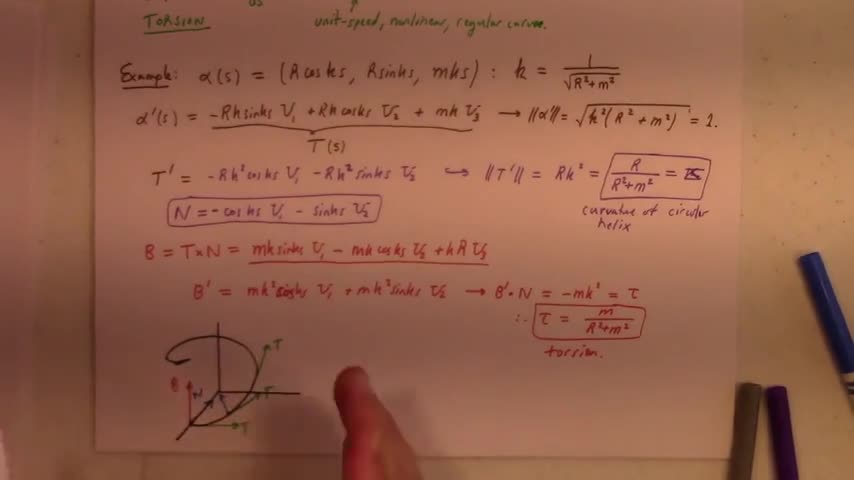 TORSION
unit-speed, nonlinear, regular curves.
Example: α(s) = (R cos ks, R sin ks, mks) : k = 1/√(R²+m²)
α'(s) = -Rk sin ks U₁ + Rk cos ks U₂ + mk U₃ → ||α'|| = √(k²(R²+m²)) = 1.
T(s)
T' = -Rk² cos ks U₁ - Rk² sin ks U₂ ↪ ||T'|| = Rk² = R/(R²+m²) = κ
N = -cos ks U₁ - sin ks U₂
curvature of circular
helix
B = T×N = mk sin ks U₁ - mk cos ks U₂ + kR U₃
B' = mk² cos ks U₁ + mk² sin ks U₂ → B'•N = -mk² = τ
∴ τ = m/(R²+m²)
torsion.
T
B N T
T